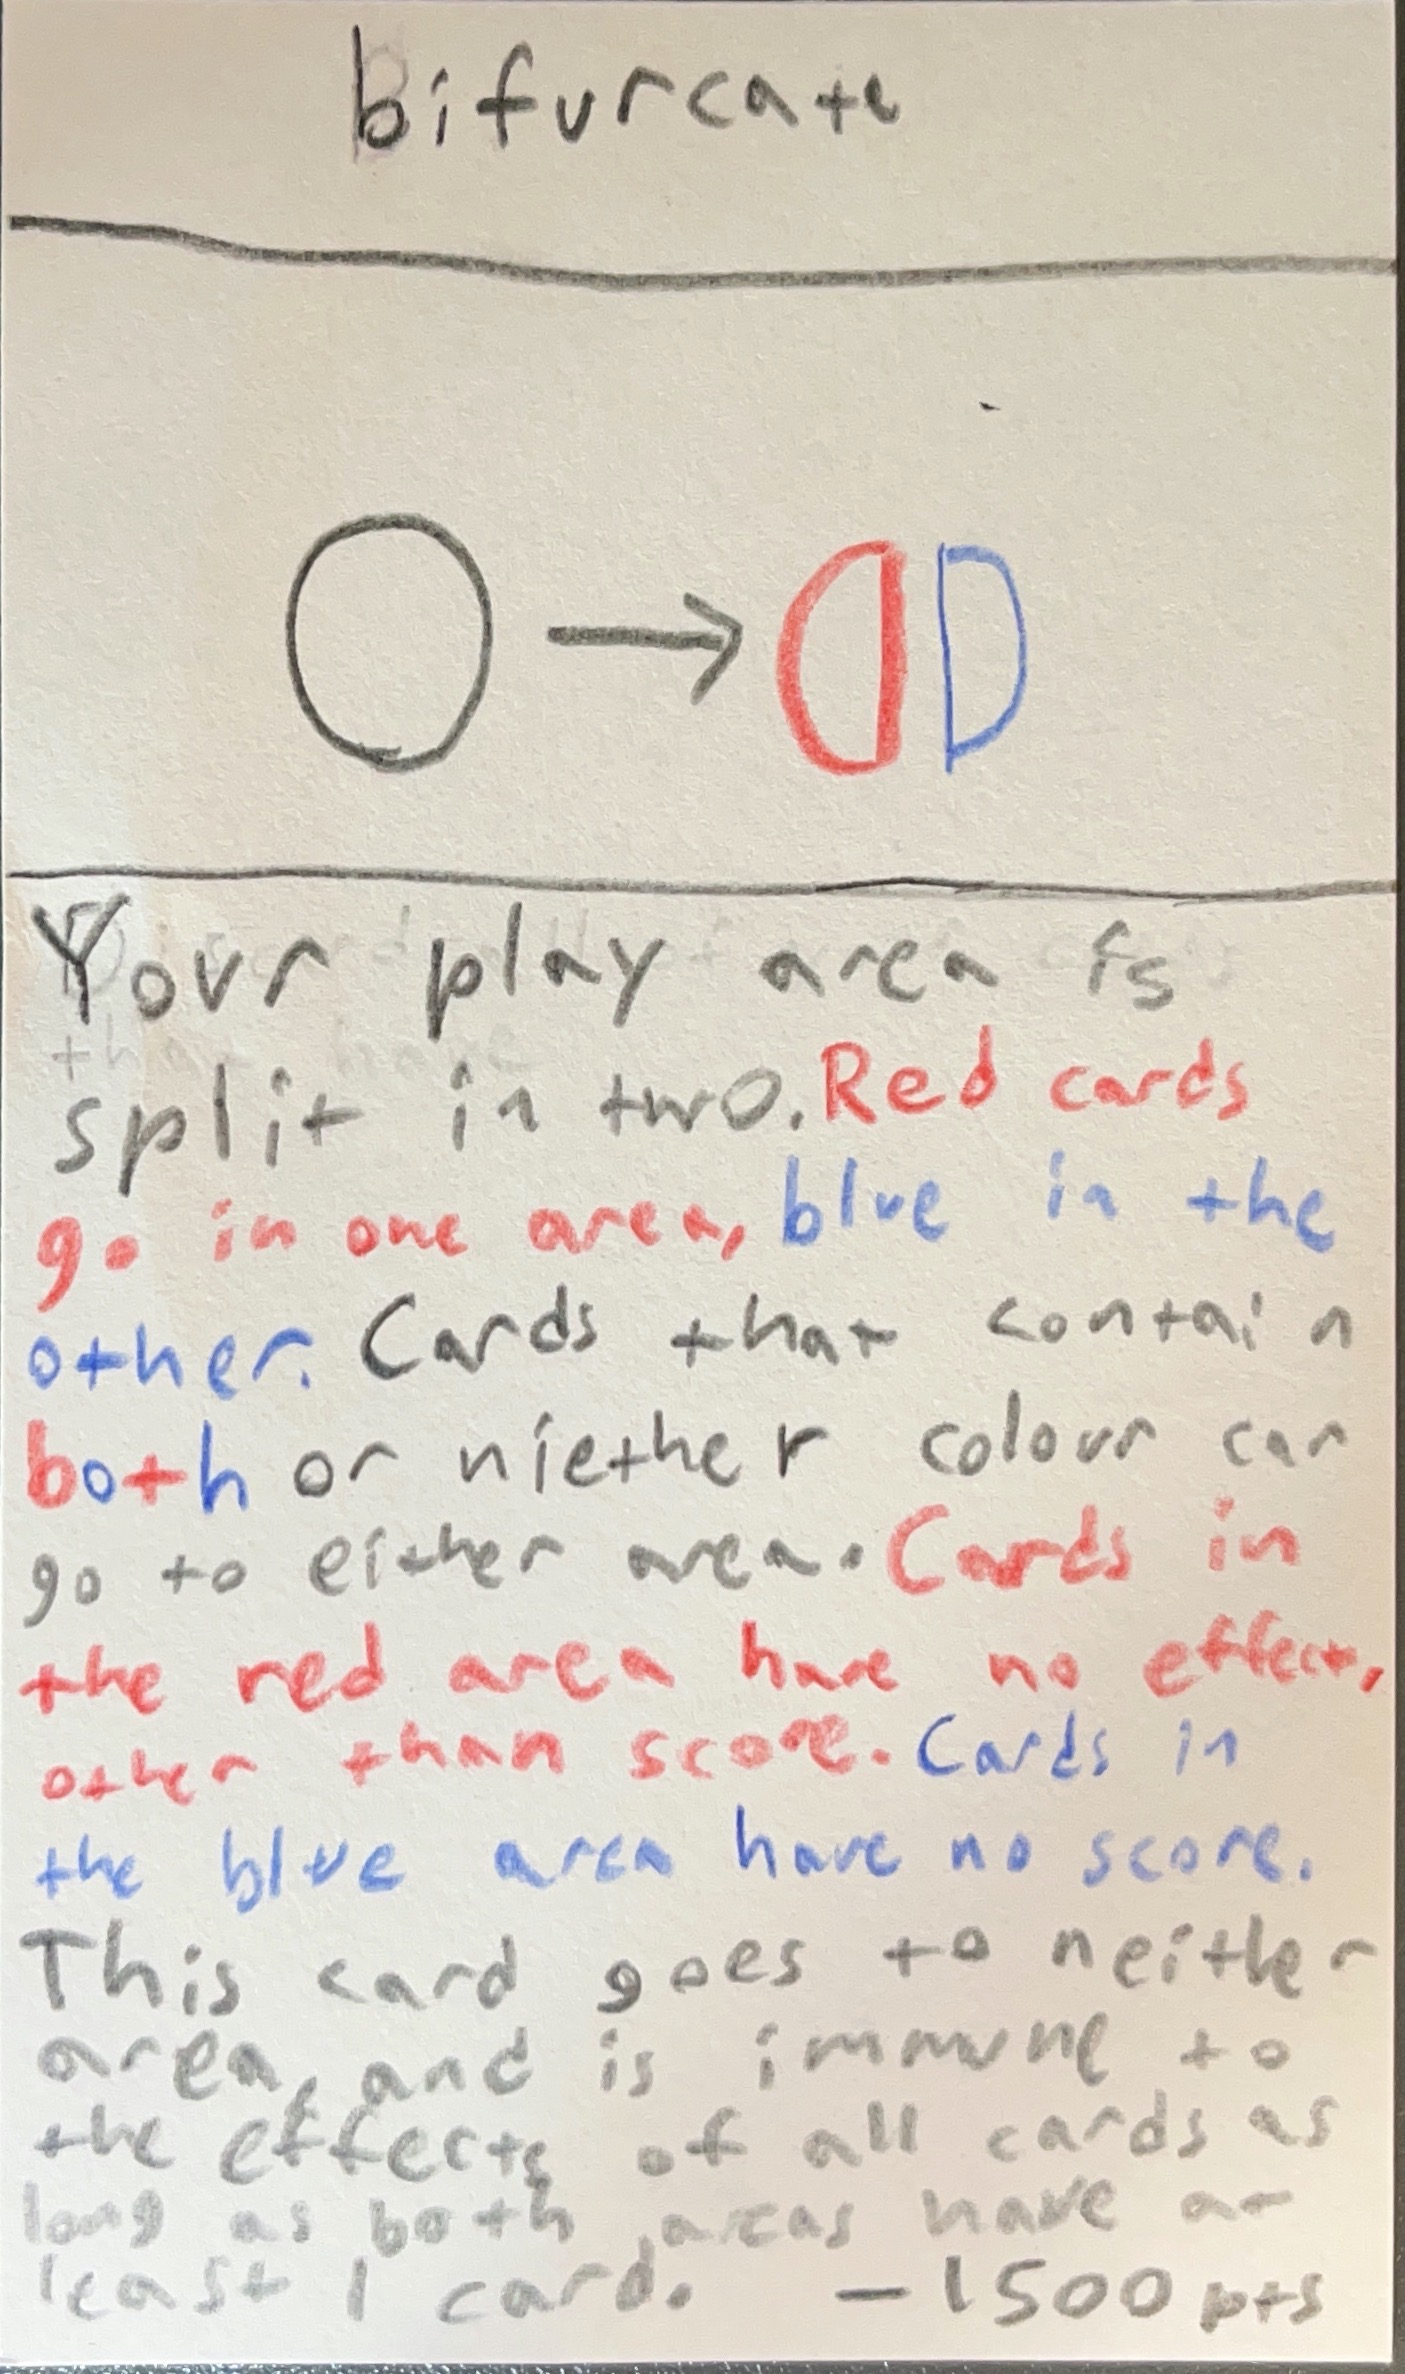 Bifurcate
Your play area is
split in two. Red cards
go in one area, blue in the
other. Cards that contain
both or niether colour can
go to either area. Cards in
the red area have no effect,
other than score. Cards in
the blue area have no score.
This card goes to neither
area, and is immune to
the effects of all cards as
long as both areas have at
least 1 card. -1500 pts